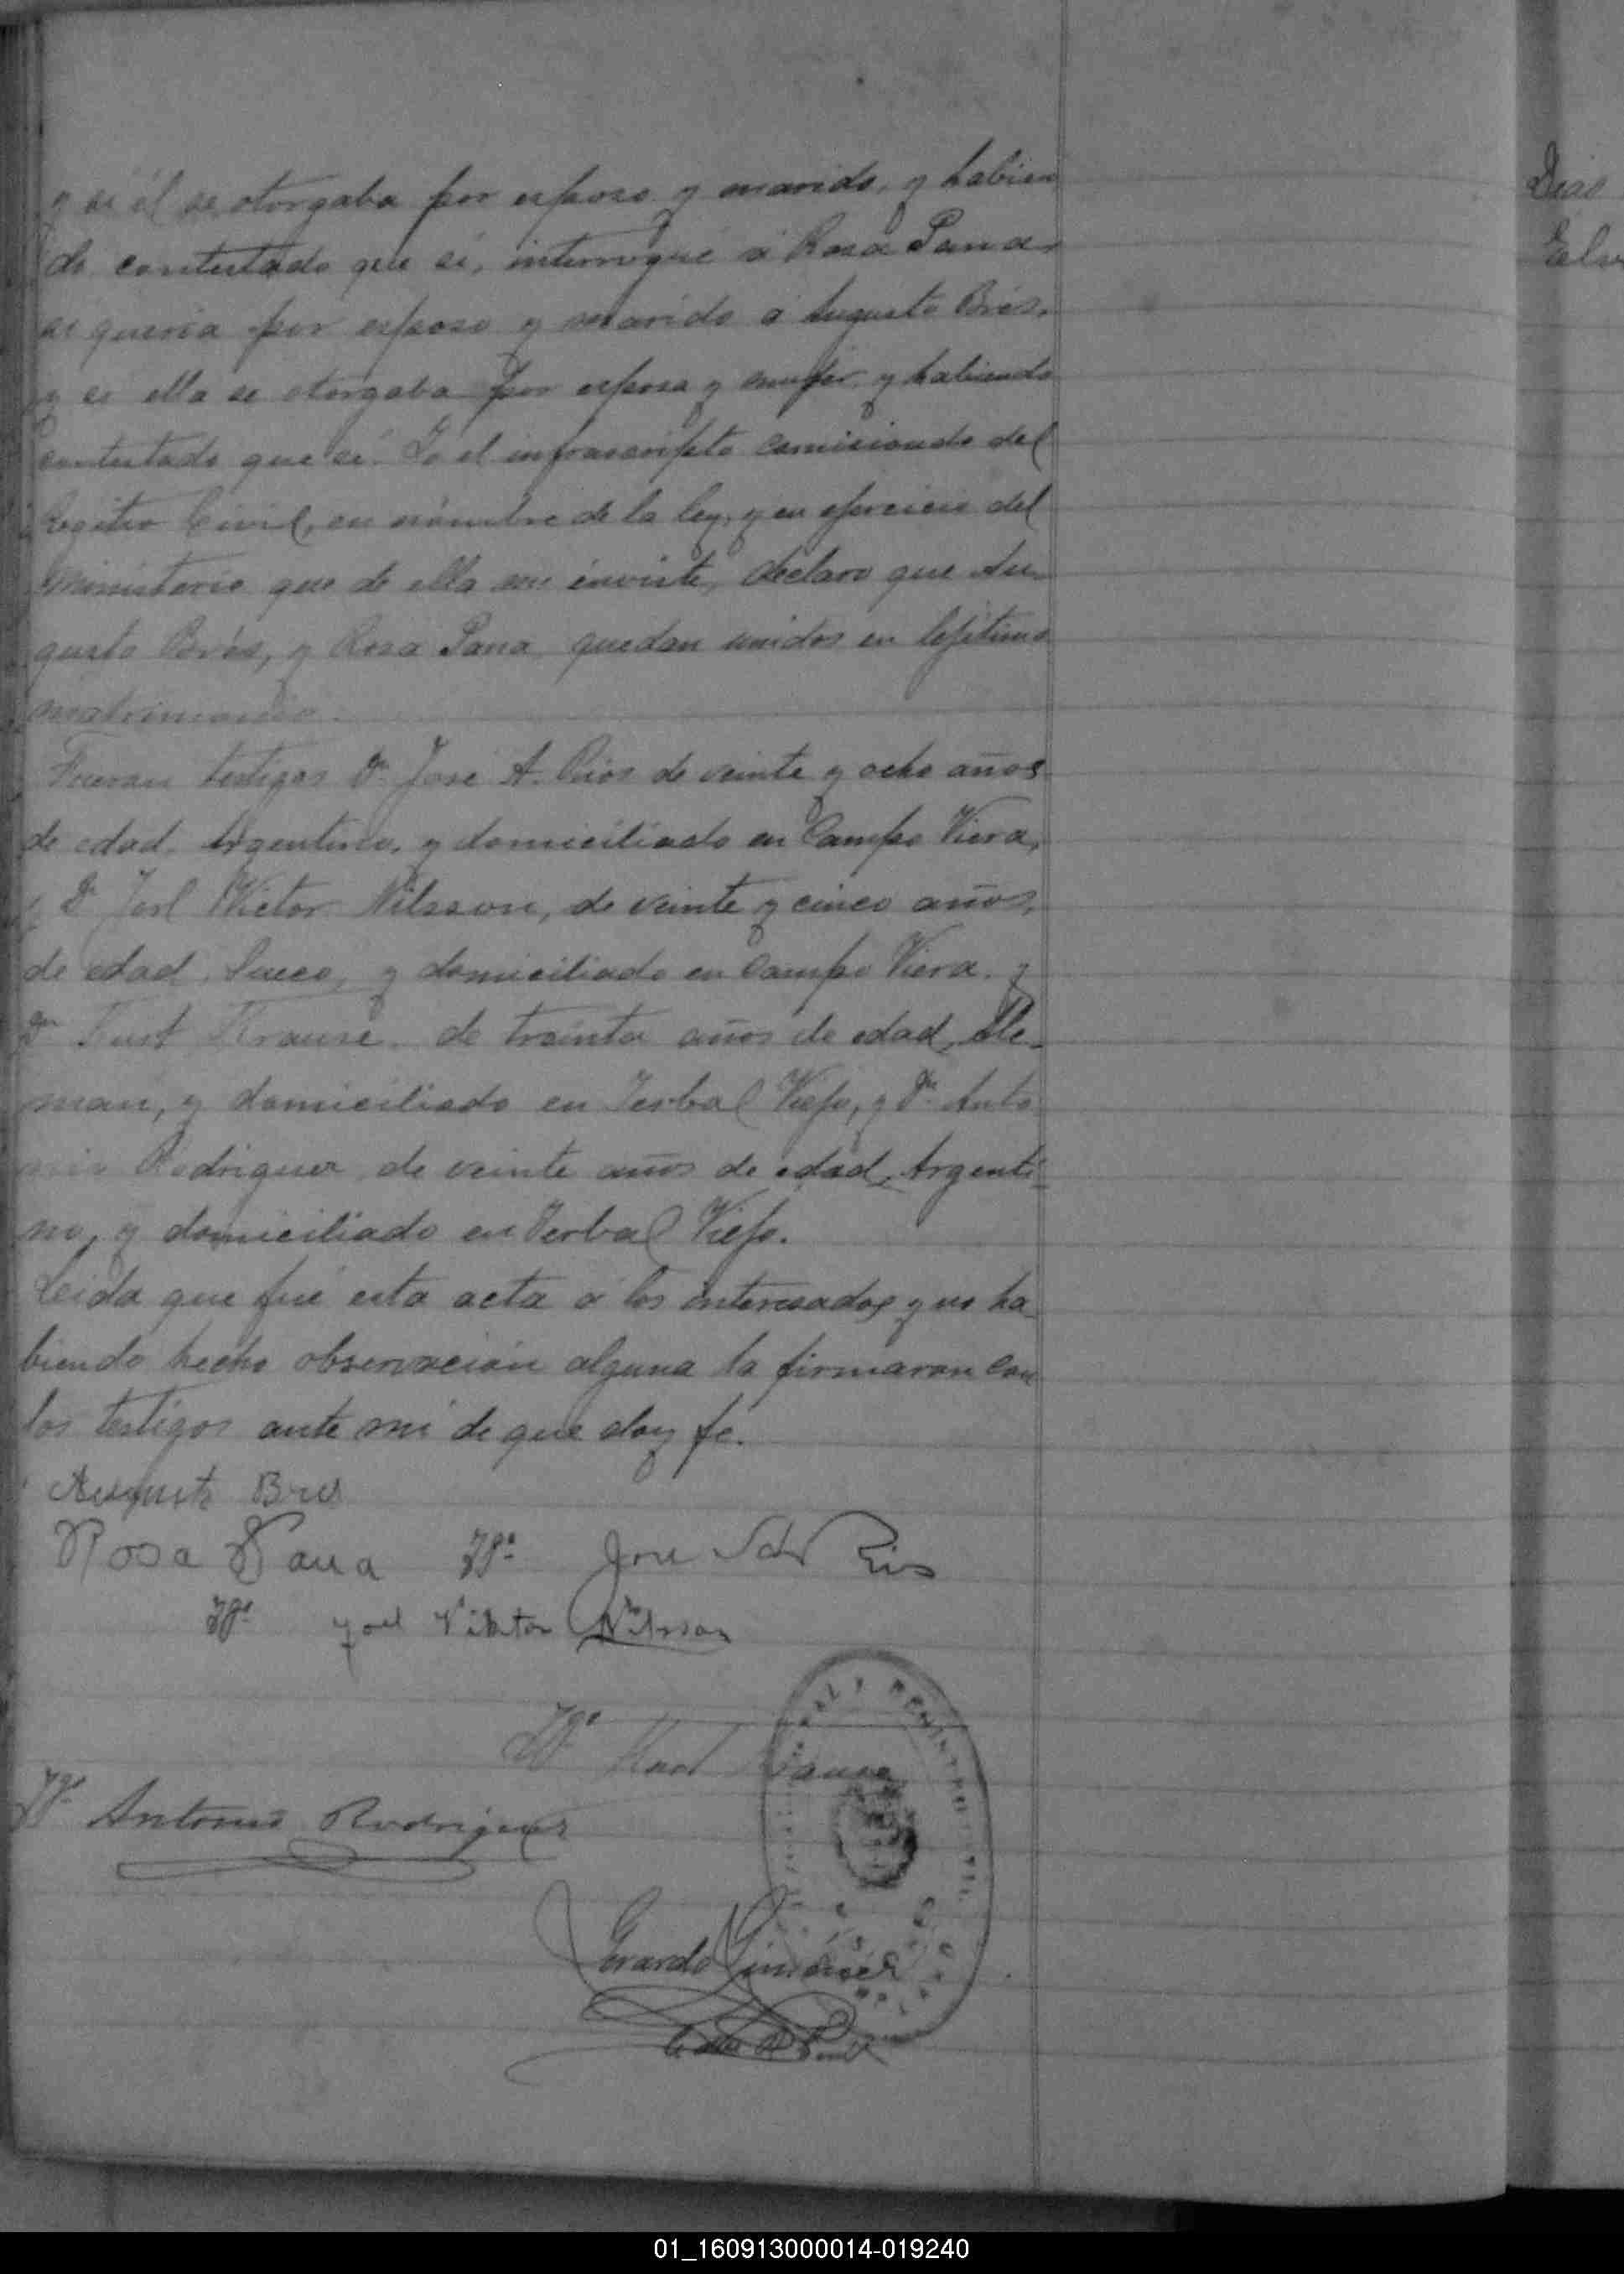 y si él se otorgaba por esposo y marido, y habien
do contestado que si, interrogué a Rosa Pana
si queria por esposo y marido a Augusto Brés,
y si ella se otorgaba por esposa y mujer y habiendo
contestado que si. Yo el infrascripto comisionado del
Registro Civil, en nombre de la ley, y en ejercicio del
ministerio que de ella me inviste, declaro que Au-
gusto Brés, y Rosa Pana quedan unidos en lejitimo
matrimonio.
Fueron testigos Dn José A. Rios de veinte y ocho años
de edad Argentino, y domiciliado en Campo Viera,
y Dn Joel Victor Nilsson, de veinte y cinco años,
de edad Sueco, y domiciliado en Campo Viera. y
Dn Kurt Krause. de treinta años de edad, Ale-
man, y domiciliado en Yerbal Viejo, y Dn Anto
nio Rodriguez de veinte años de edad, Argenti-
no, y domiciliado en Yerbal Viejo.
Leida que fué esta acta a los interesados y no ha
biendo hecho observación alguna la firmaron con
los testigos ante mi de que doy fé.
Augusto Bres
Rosa Pana Tgo José Rios
Tgo Joel Viktor Nilsson
Tgo Kurt Krause
Tgo Antonio Rodriguez
Gerardo Gimenez
Dias
01_160913000014-019240